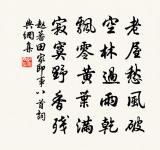 老屋愁風破
空林過雨乾
飄零黃葉滿
寂寞野香殘
趙蕃田家即事八首詞
典網集